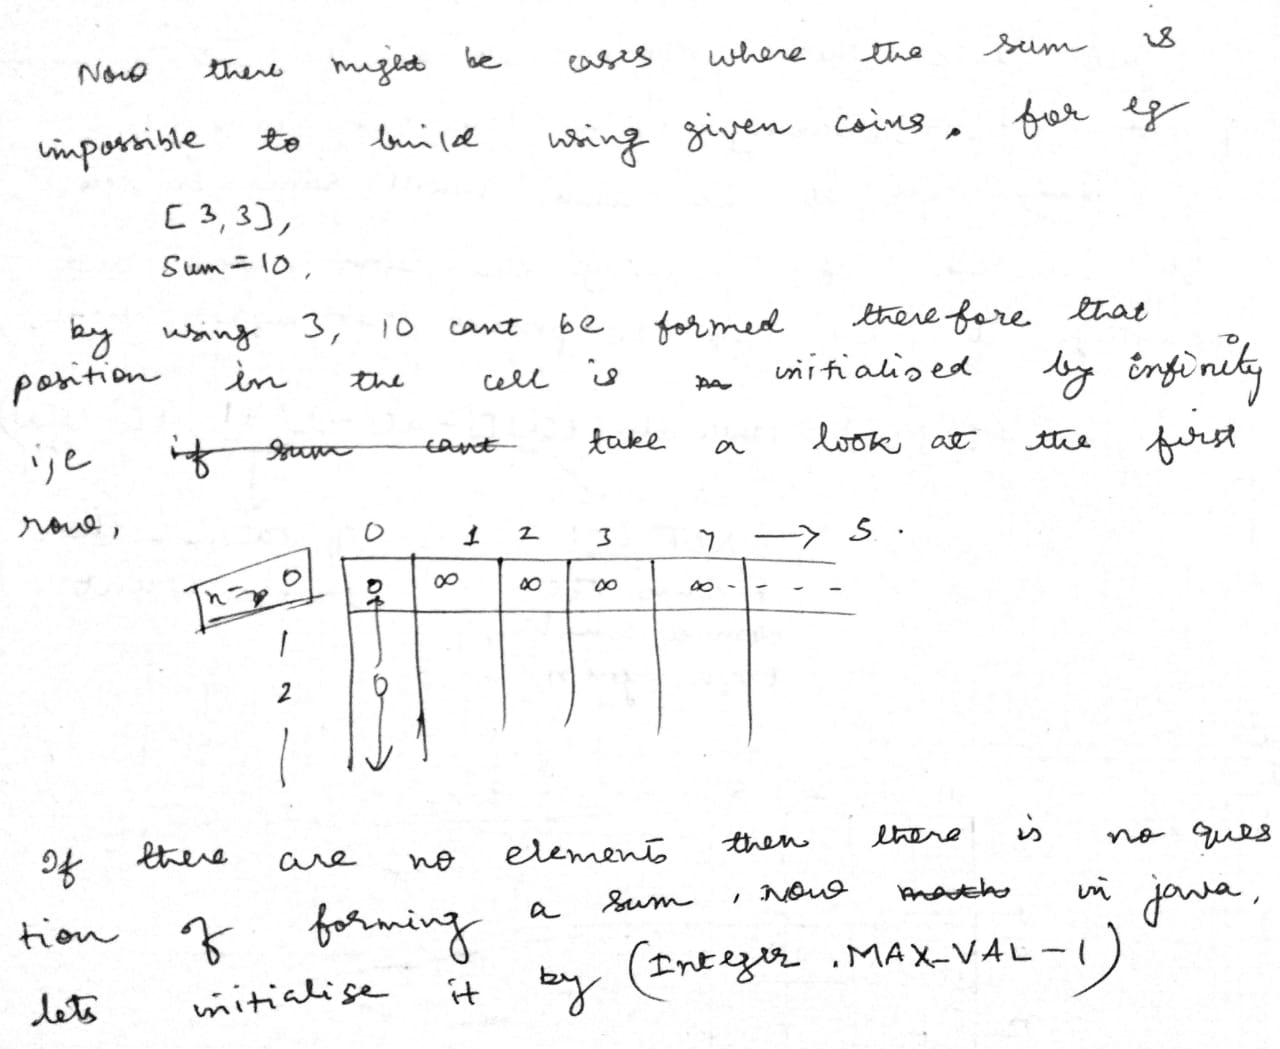 Now there might be cases where the sum is
impossible to build using given coins. for eg
[3,3],
Sum = 10,
by using 3, 10 cant be formed therefore that
position in the cell is initialised by infinity
i,e if sum cant take a look at the first
row,
0 1 2 3 4 → S.
n=> 0 0 ∞ ∞ ∞ ∞ - - - -
1
2 0
If there are no elements then there is no ques
tion of forming a sum, now in java,
lets initialise it by (Integer.MAX_VAL-1)